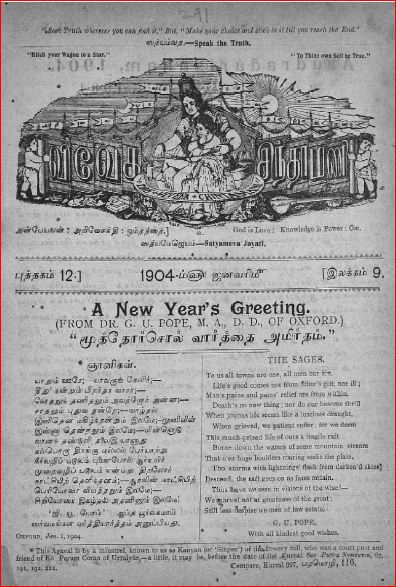 "Seek Truth wherever you can find it," But, "Make your choice and stick to it till you reach the End."
ஸத்யம்வத.—Speak the Truth.
"Hitch your Wagon to a Star."
"To Thine own Self be True."
விவேக சிந்தாமணி
அன்பேயவன் : அறிவேசக்தி : ஓம்தத்ஸத்.]
God is Love: Knowledge is Power: Om.
ஸத்யமேவஜெயதி.—Satyameva Jayati.
புத்தகம் 12.] 1904-ம்ளு ஜனவரிமீ [இலக்கம் 9.
A New Year's Greeting.
(FROM DR. G. U. POPE, M. A., D. D., OF OXFORD.)
"மூத்தோர்சொல் வார்த்தை அமிர்தம்."
ஞானிகள்.
யாதும் ஊரே; யாவருங் கேளிர்;
தீதும் நன்றும் பிறர்தர வாரா;—
சாதலும் புதுவ தன்றே;—வாழ்தல்
பெரியோரை வியத்தலும் இலமே—
சிறியோரை இகழ்தல் அதனினும் இலமே!
OXFORD, Jan. 1, 1904.
THE SAGES.
To us all towns are one, all men our kin.
Life's good comes not from other's gift, nor ill;
Man's pains and pains' relief are from within.
Death's no new thing; nor do our bosoms thrill
When joyous life seems like a luscious draught.
When grieved, we patient suffer; for we deem
This much-prized life of ours a fragile raft
Borne down the waters of some mountain stream
That o'er huge boulders roaring seeks the plain.
Tho' storms with lightnings' flash from darken'd skies
Descend, the raft goes on as fates ordain.
Thus have we seen in visions of the wise!—
We marvel not at greatness of the great;
Still less despise we men of low estate.
G. U. POPE,
With all kindest good wishes.
* This Agaval is by a minstrel, known to us as Kanyan (or 'Singer') of the flowery hill, who was a court poet and
friend of Ko Perum Coran of Urraiyur,—a little, it may be, before the date of the Kurral. See Purra Nannurru, 67,
191, 192, 212. Compare, Kurral 397, 116.